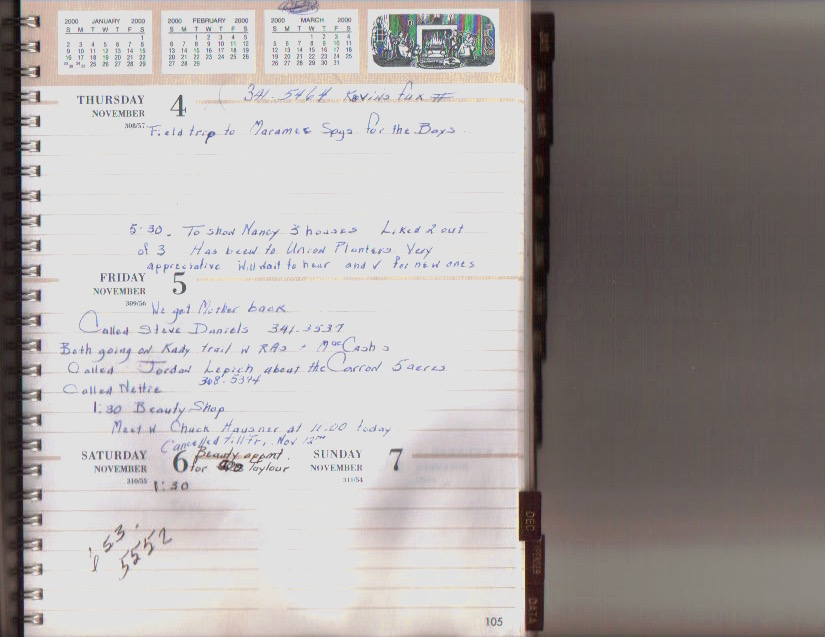 2000 JANUARY 2000
S M T W T F S
1
2 3 4 5 6 7 8
9 10 11 12 13 14 15
16 17 18 19 20 21 22
23 24 25 26 27 28 29
30 31
2000 FEBRUARY 2000
S M T W T F S
1 2 3 4 5
6 7 8 9 10 11 12
13 14 15 16 17 18 19
20 21 22 23 24 25 26
27 28 29
2000 MARCH 2000
S M T W T F S
1 2 3 4
5 6 7 8 9 10 11
12 13 14 15 16 17 18
19 20 21 22 23 24 25
26 27 28 29 30 31
THURSDAY 4
NOVEMBER
308/57
341-5464 Kevins fax #
Field trip to Maramec Spgs for the Boys
5:30. To show Nancy 3 houses Liked 2 out
of 3 Has been to Union Planters Very
appreciative Will wait to hear and √ for new ones
FRIDAY 5
NOVEMBER
309/56
We got Mother back
Called Steve Daniels 341-3537
Both going on Kady trail w RAs + MacCash s
Called Jordan Lepich about the Carrol 5 acres
Called Nettie 368-5394
1:30 Beauty Shop
Meet w Chuck Hausner at 11:00 today
Cancelled till Fri, Nov 12th
SATURDAY 6
NOVEMBER
310/55
Beauty appmt.
for Taylour
1:30
SUNDAY 7
NOVEMBER
311/54
153-
5552
DEC
DATA
105